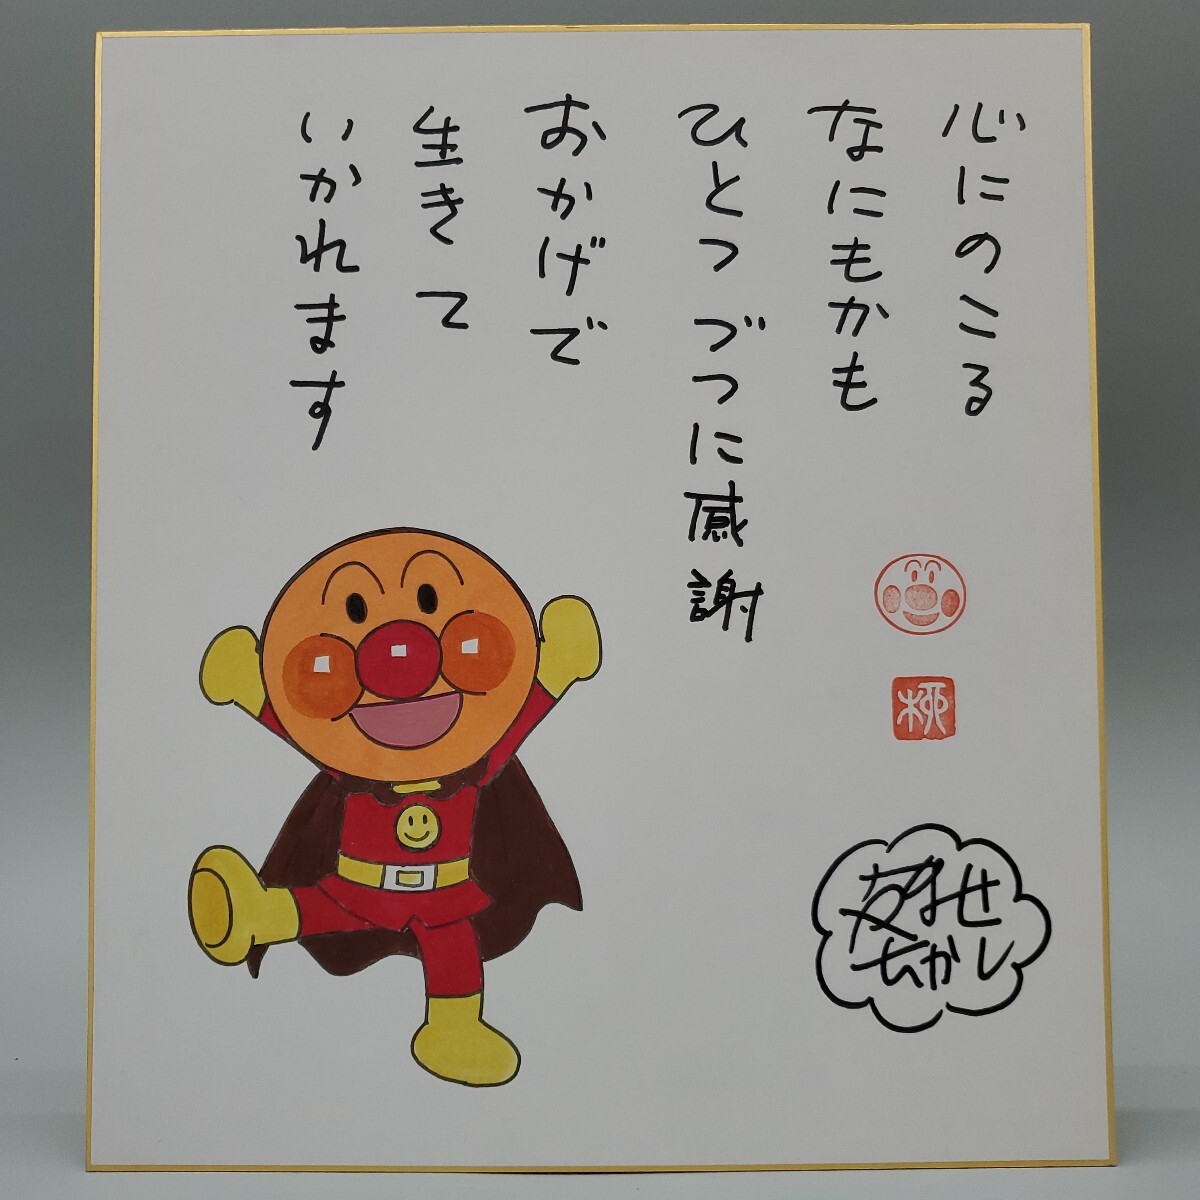 心にのこる
なにもかも
ひとつづつに感謝
おかげで
生きて
いかれます
柳